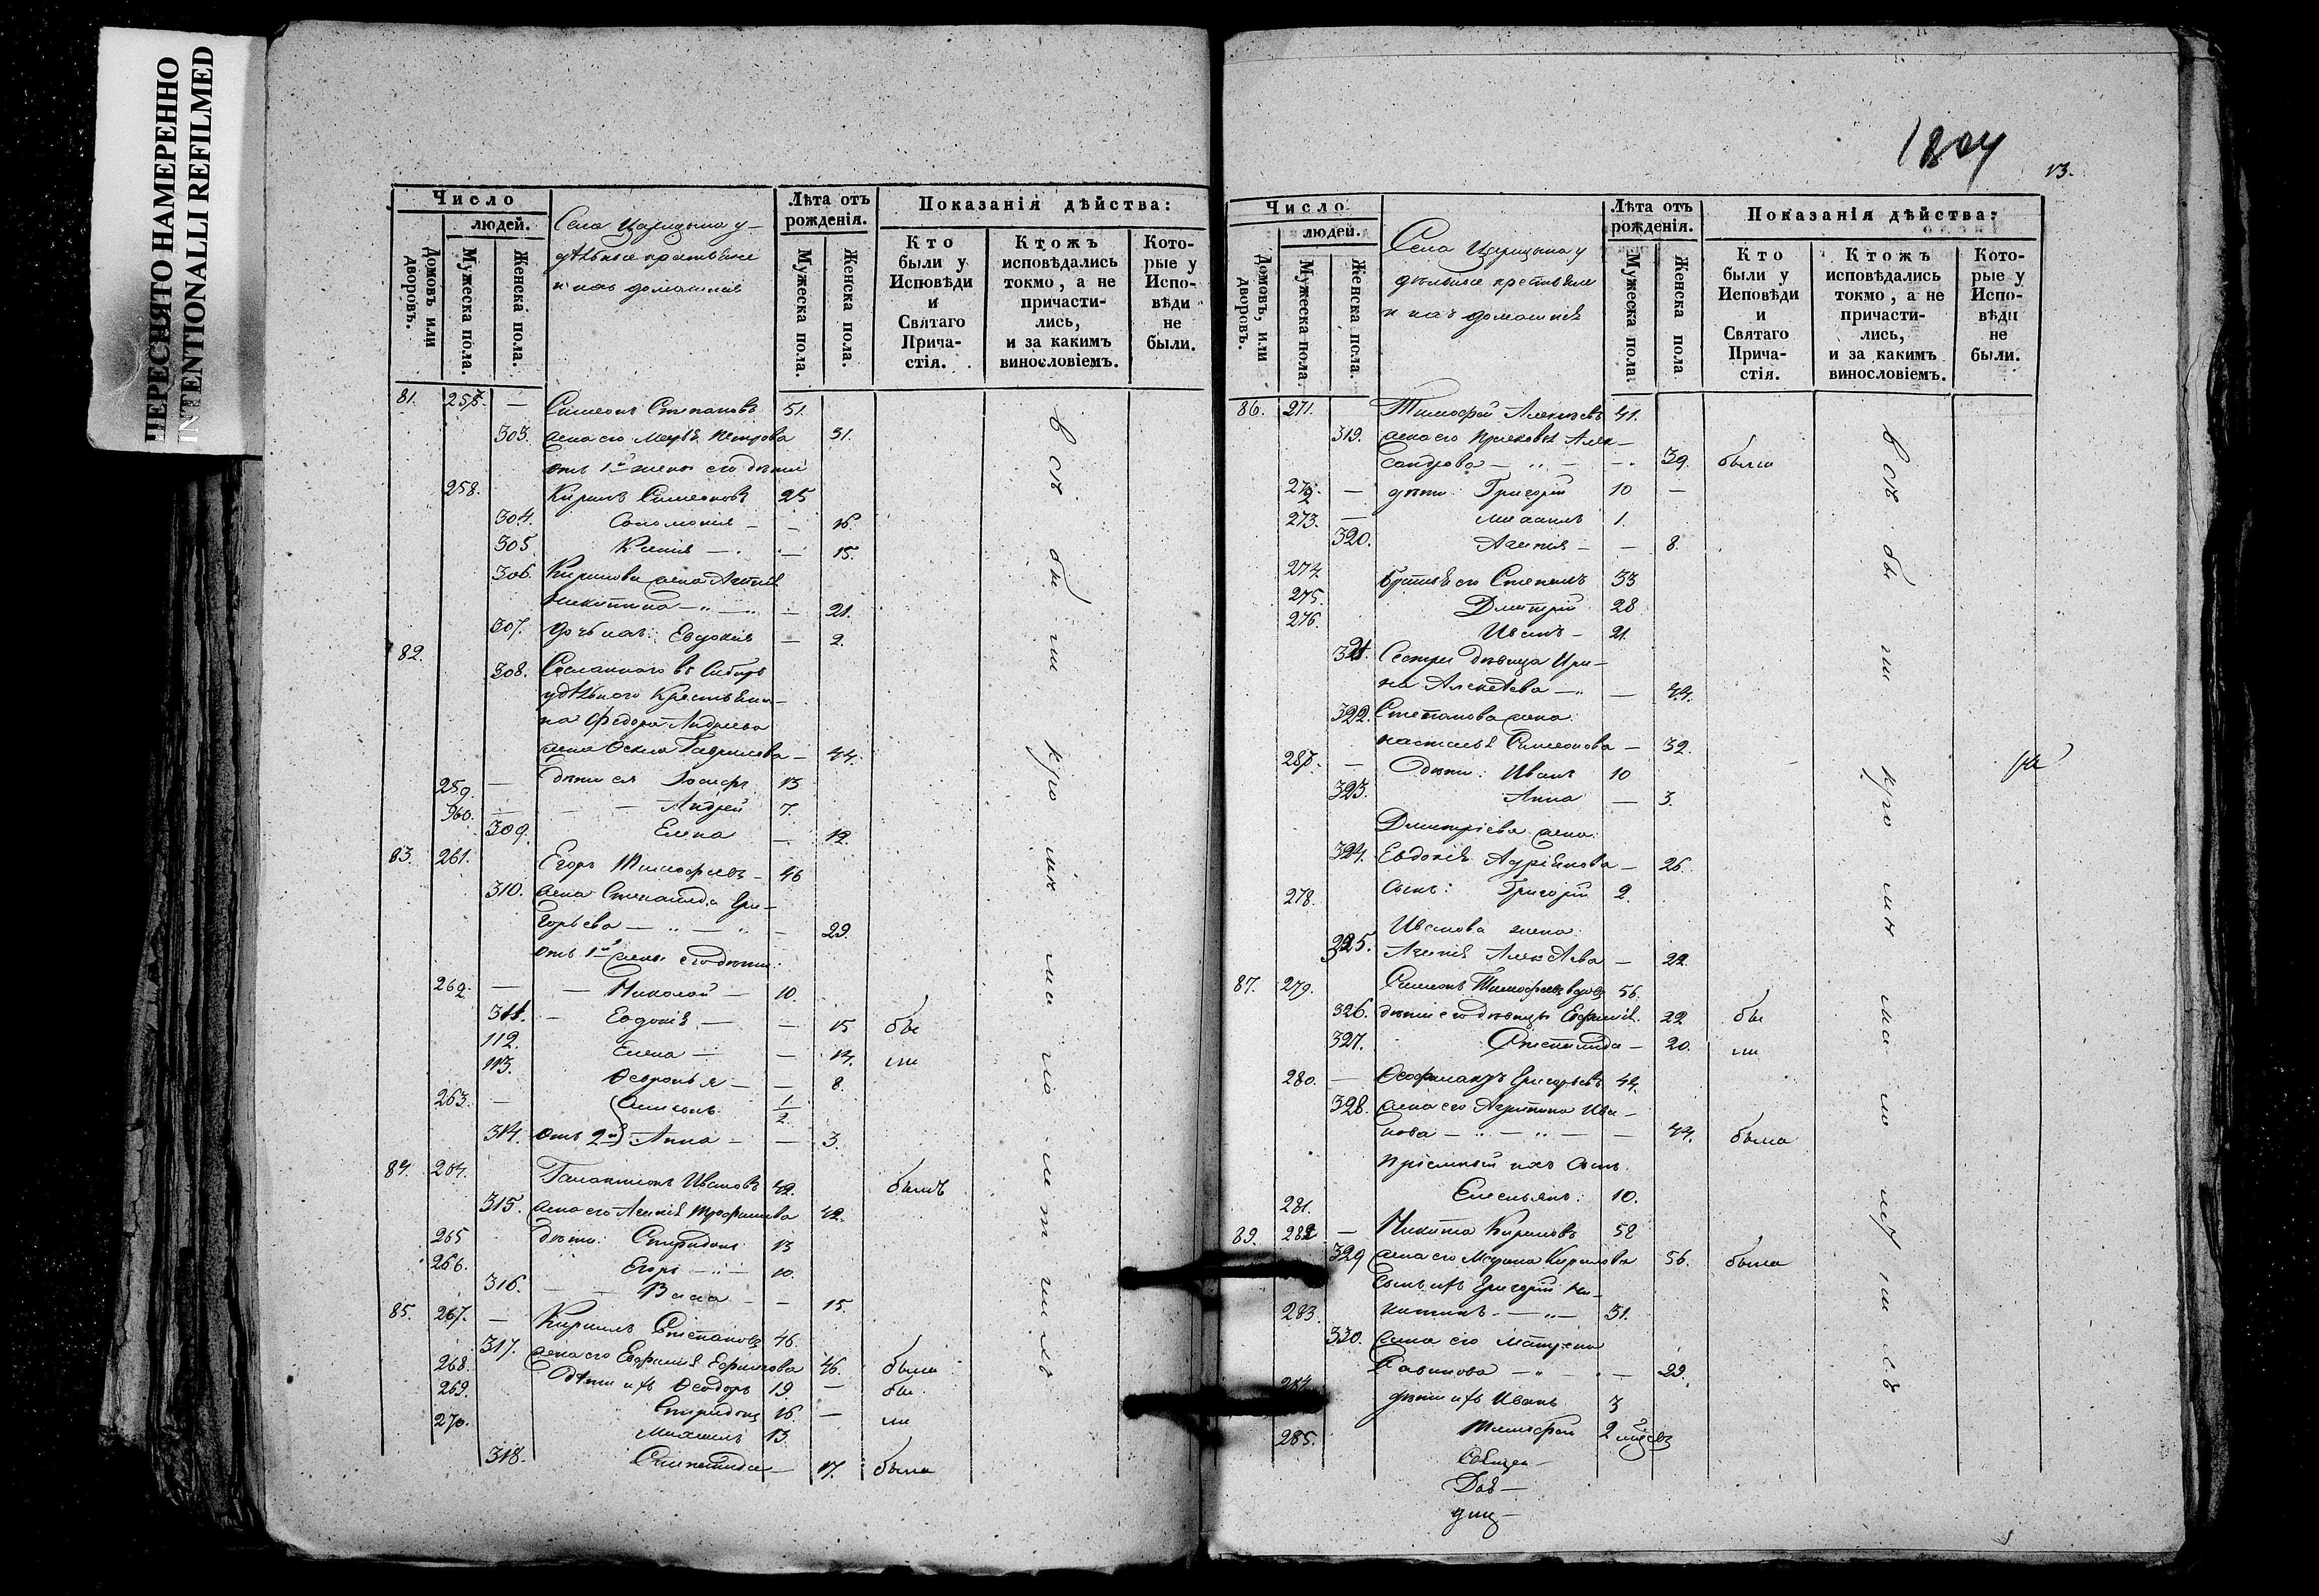 ПЕРЕСНЯТО НАМЕРЕННО
INTENTIONALLI REFILMED
Число
людей.
Домовъ или дворовъ.
Мужеска пола.
Женска пола.
Села Царицына у-
дѣльные крестьяне
и ихъ домашніе
Лѣта отъ рожденія.
Мужеска пола.
Женска пола.
Показанія дѣйства:
Кто были у Исповѣди и Святаго Причастія.
Ктожъ исповѣдались токмо, а не причастились, и за какимъ винословіемъ.
Которые у Исповѣди не были.
81. 257. — Симеонъ Степановъ 51.
303. жена его Марѳа Петрова 31.
отъ 1й жены его дѣти
258. Кирилъ Симеоновъ 25
304. Соломонія — — 16.
305. Ксенія — — 15.
306. Кирилова жена
Никитина — — 21.
307. дочь ихъ: Евдокія — 2.
82. 308. Сосланнаго въ Сибирь
удѣльнаго Крестьяни-
на Федора Андреева
жена Гаврилова — 44.
259. — дѣти ея Іосифъ 13
260. — — Андрей 7.
309. Елена — 12.
83. 261. Егоръ Тимофеевъ — 46
310. жена Степанида Гри-
горьева — — 29.
отъ 1й жены его дѣти:
262. — — Николай — 10.
311. — Евдокія — — 15 бы
112. Елена — — 14. ли
113. Февронья — — 8.
263. — Симеонъ 1/2
314. отъ 2й Анна — — 3.
84. 264. Галактионъ Ивановъ 42. былъ
315. жена его Ксенія Трофимова 42.
265 дѣти: Спиридонъ 13
266. Егоръ — 10.
316. — — Васса — — 15.
85. 267. — Кирилъ Степановъ 46.
317. жена его Евфимія Ефимова 46. была
268. Дѣти ихъ Ѳеодоръ 19. — бы
269. Спиридонъ 16. — ли
270. Михаилъ 13.
318. Степанида — 17. была
всѣ были кромѣ малолѣтнихъ
1804
13.
Число
людей.
Домовъ, или дворовъ.
Мужеска пола.
Женска пола.
Села Царицына у
дѣльные крестьяне
и ихъ домашніе
Лѣта отъ рожденія.
Мужеска пола.
Женска пола
Показанія дѣйства:
Кто были у Исповѣди и Святаго Причастія.
Ктожъ исповѣдались токмо, а не причастились, и за какимъ винословіемъ.
Которые у Исповѣди не были.
86. 271. Тимофей Алексѣевъ 41.
319. жена его Прасковья Алек-
сандрова — — 39. была
272. — дѣти: Григорій 10 —
273. — Михаилъ 1.
320. Ксенія — — 8.
274. братья его Степанъ 33
275. Дмитрій 28
276. Иванъ — 21.
321. Сестра дѣвица Ири-
на Алексѣева — — 44.
322. Степанова жена:
Настасья Симеонова — 32.
287. — дѣти: Иванъ 10
323. Анна — 3.
Дмитріева жена:
324. Евдокія Адріянова — 26.
278. сынъ: Григорій 2.
Иванова жена:
325. Ксенія Алексѣева — 22
87. 279. Симеонъ Тимофеевъ вдовъ 56.
326. дѣти его дѣвицы Евфимія. 22 бы
327. Степанида — 20. ли
280. — Ѳеофилактъ Григорьевъ 44.
328. жена его Агрипина Ива-
нова — — — 44. была
Пріемный ихъ сынъ
281. Емельянъ: 10.
89. 282 — Никита Кириловъ 58
329 жена его Марина Кирилова 56. была
Сынъ ихъ Григорій Ни-
283. китинъ — — 31.
330. жена его Матрена
Савинова — — 29.
284. дѣти ихъ Иванъ 3
285. Тимофей 2 мѣсяц
всѣ были кромѣ малолѣтнихъ
Священ-